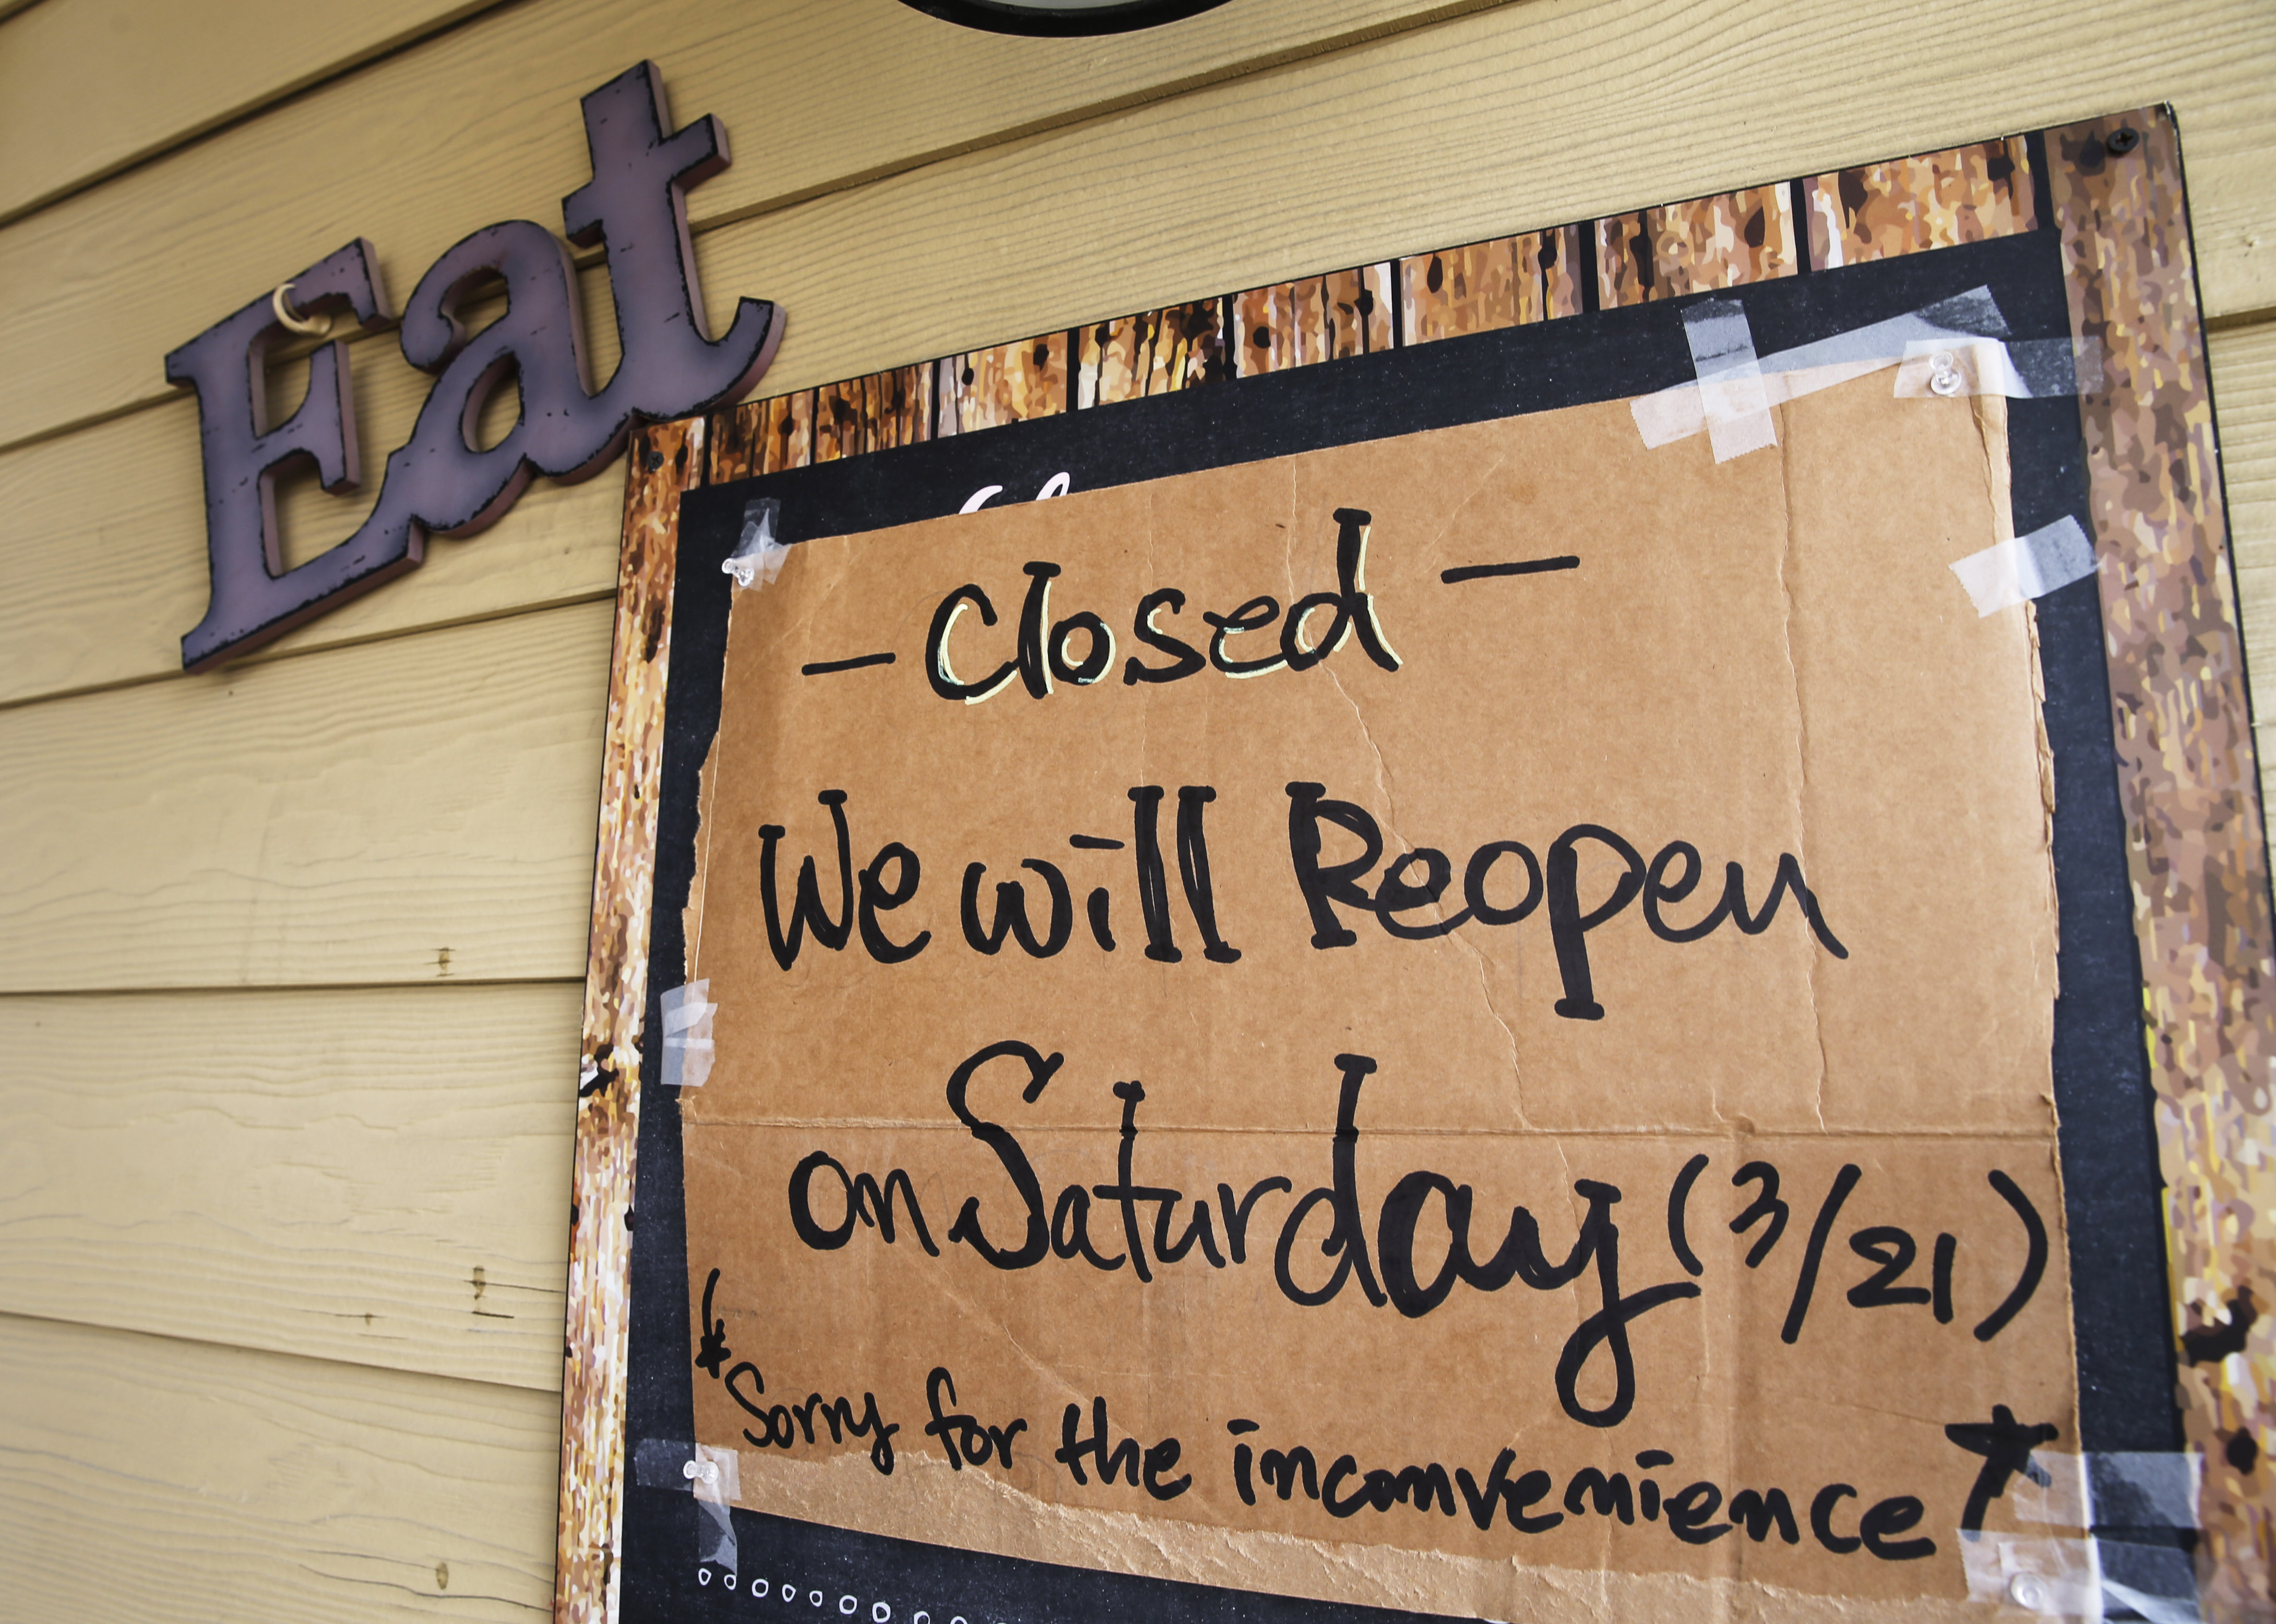 Eat
- Closed -
We will Reopen
on Saturday (3/21)
*Sorry for the inconvenience*